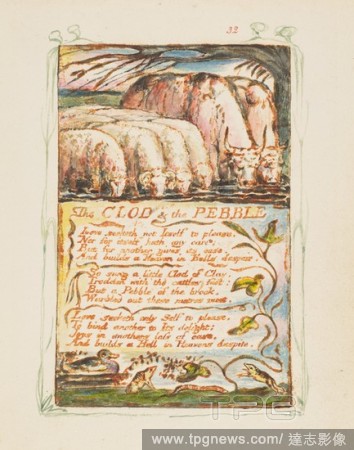 32
The CLOD & the PEBBLE
Love seeketh not Itself to please,
Nor for itself hath any care;
But for another gives its ease,
And builds a Heaven in Hells despair.
So sung a little Clod of Clay,
Trodden with the cattles feet;
But a Pebble of the brook,
Warbled out these metres meet.
Love seeketh only Self to please,
To bind another to Its delight;
Joys in anothers loss of ease,
And builds a Hell in Heavens despite.
TPG
www.tpgnews.com/ 達志影像